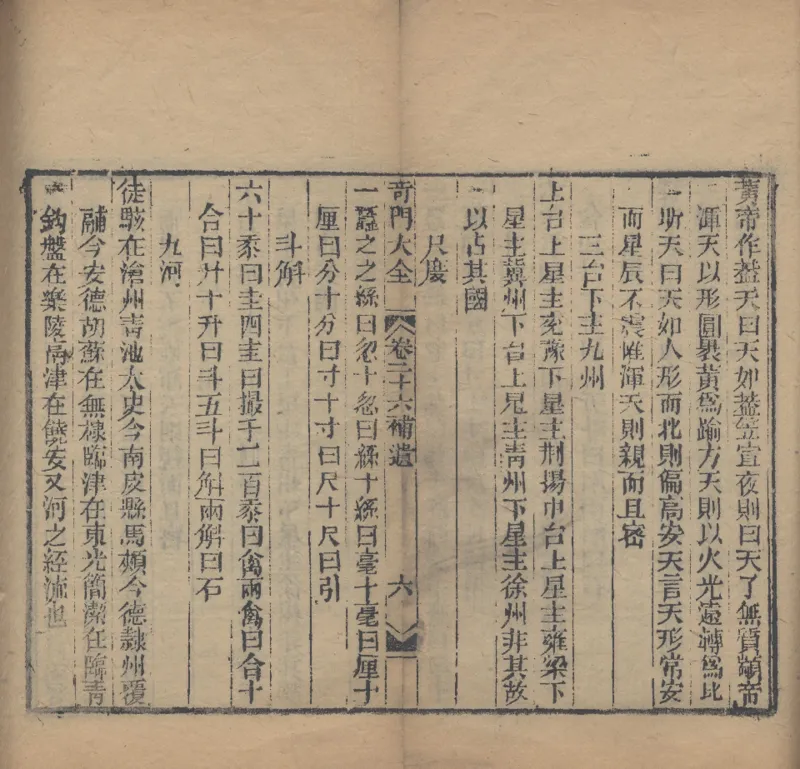 黃帝作蓋天曰天如蓋笠宣夜則曰天了無質顓帝
渾天以形圓裹黃為踰方天則以火光遠轉為比
昕天曰天如人形而北則偏高安天言天形常安
而星辰不震惟渾天則親而且密
三台下主九州
上台上星主兗豫下星主荆揚中台上星主雍梁下
星主冀州下台上星主青州下星主徐州非其故
以占其國
尺度
奇門大全 卷二十六補遺 六
一蠶之之絲曰忽十忽曰絲十絲曰毫十毫曰厘十
厘曰分十分曰寸十寸曰尺十尺曰引
斗斛
六十黍曰圭四圭曰撮千二百黍曰龠兩龠曰合十
合曰升十升曰斗五斗曰斛兩斛曰石
九河
徒駭在滄州青池太史今南皮縣馬頰今德隸州覆
鬴今安德胡蘇在無棣臨津在東光簡潔在臨青
鈎盤在樂陵鬲津在饒安又河之經流也